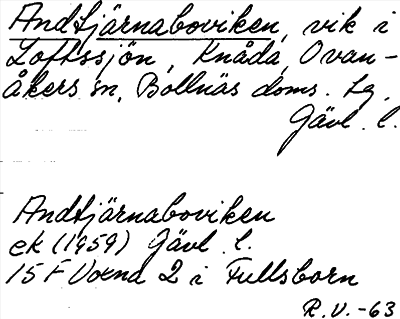 Andtjärnaboviken, vik i
Loftssjön, Knåda, Ovan-
åkers sn, Bollnäs doms. lg,
Gävl. l.
Andtjärnaboviken
ek (1959) Gävl. l.
15 F Voxna 2 i Fullsborn
R.V.-63